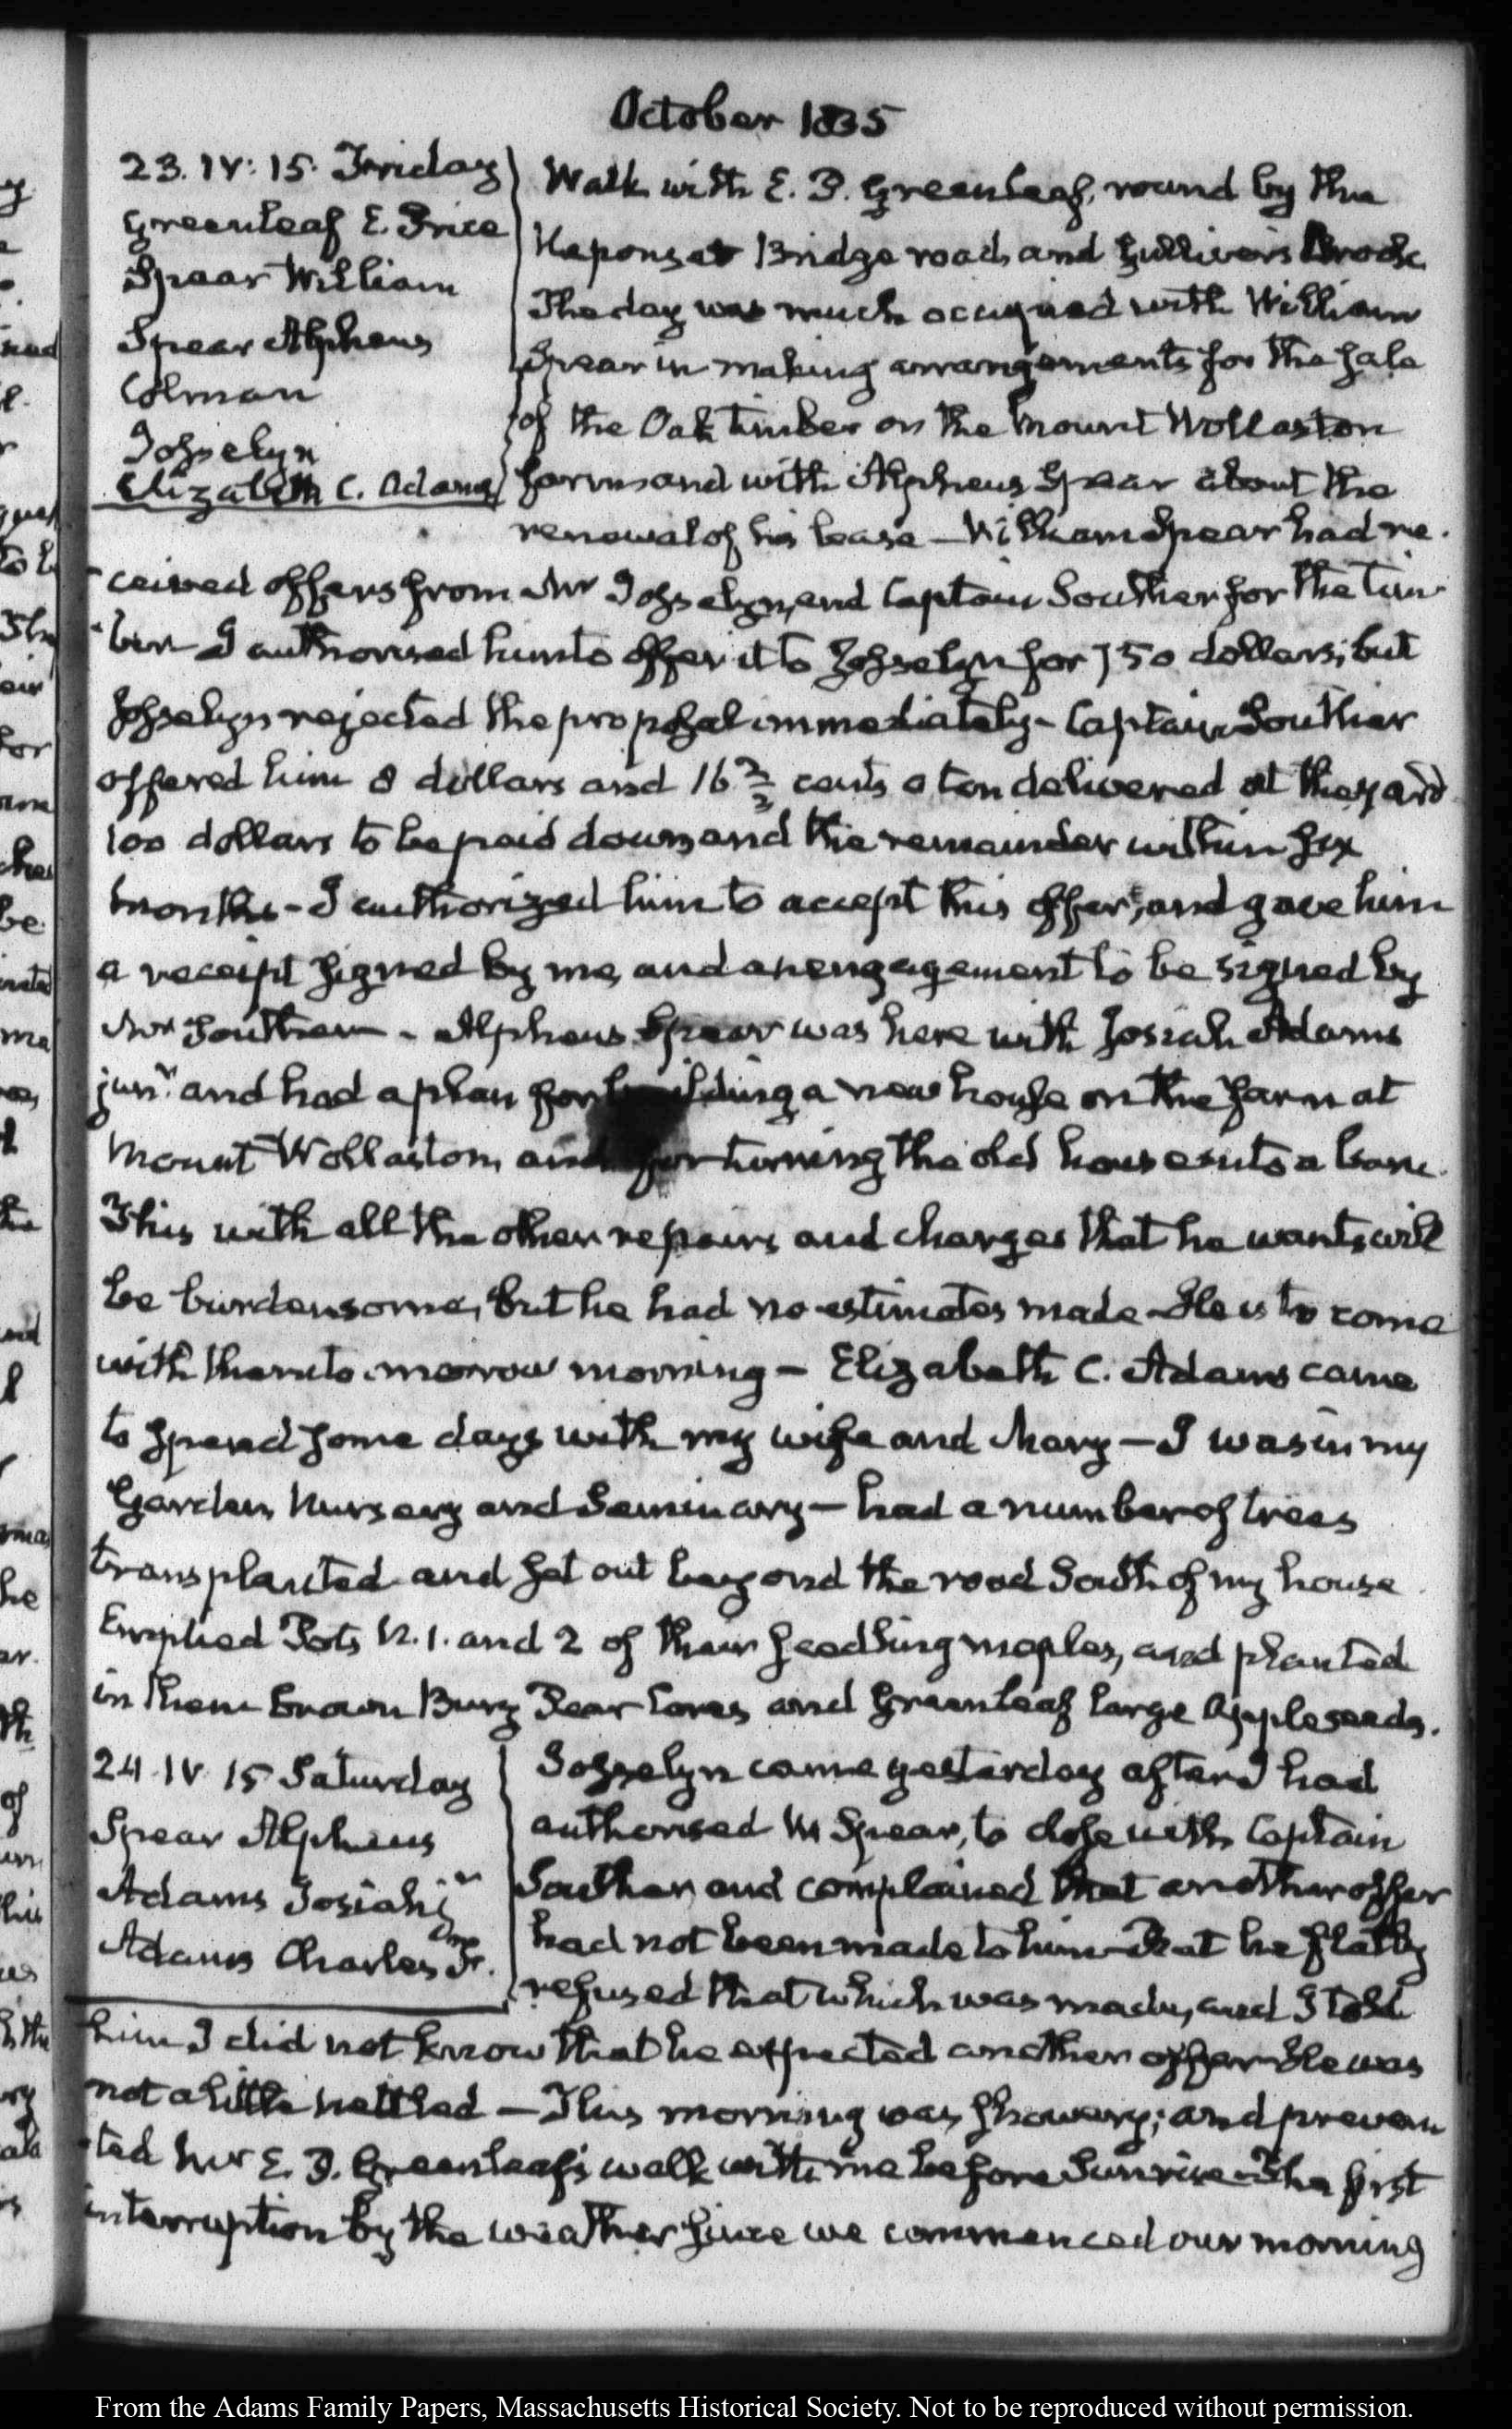 October 1835
23. IV: 15. Friday
Greenleaf E. Price
Spear William
Spear Alpheus
Colman
Josselyn
Elizabeth C. Adams
Walk with E. P. Greenleaf, round by the
Neponset Bridge road, and Gulliver's Brook
The day was much occupied with William
Spear in making arrangements for the sale
of the Oak timber on the Mount Wollaston
farm, and with Alpheus Spear about the
renewal of his lease — William Spear had re-
-ceived offers from Mr Josselyn, and Captain Souther for the tim-
-ber I authorised him to offer it to Josselyn for 750 dollars; but
Josselyn rejected the proposal immediately - Captain Souther
offered him 8 dollars and 16 2/3 cents a ton delivered at the yard
100 dollars to be paid down, and the remainder within six
months - I authorized him to accept this offer, and gave him
a receipt signed by me, and an engagement to be signed by
Mr Souther - Alpheus Spear was here with Josiah Adams
junr. and had a plan for building a new house on the farm at
Mount Wollaston, and for turning the old house into a barn.
This with all the other repairs and charges that he wants, will
be burdensome, but he had no estimates made - He is to come
with them to-morrow morning — Elizabeth C. Adams came
to spend some days with my wife and Mary — I was in my
Garden, Nursery and Seminary — had a number of trees
transplanted and set out beyond the road South of my house
Emptied Pots N. 1. and 2 of their seedling maples, and planted
in them brown Bury Pear Cores and Greenleaf large Apple seeds.
24. IV. 15 Saturday
Spear Alpheus
Adams Josiah jr
Adams Charles Fr.
Josselyn came yesterday after I had
authorised W Spear, to close with Captain
Souther, and complained that another offer
had not been made to him - But he flatly
refused that which was made, and I told
him I did not know that he expected another offer - He was
not a little nettled — This morning was showery; and preven-
-ted Mr E. P. Greenleaf's walk with me before Sunrise - The first
interruption by the weather since we commenced our morning
From the Adams Family Papers, Massachusetts Historical Society. Not to be reproduced without permission.